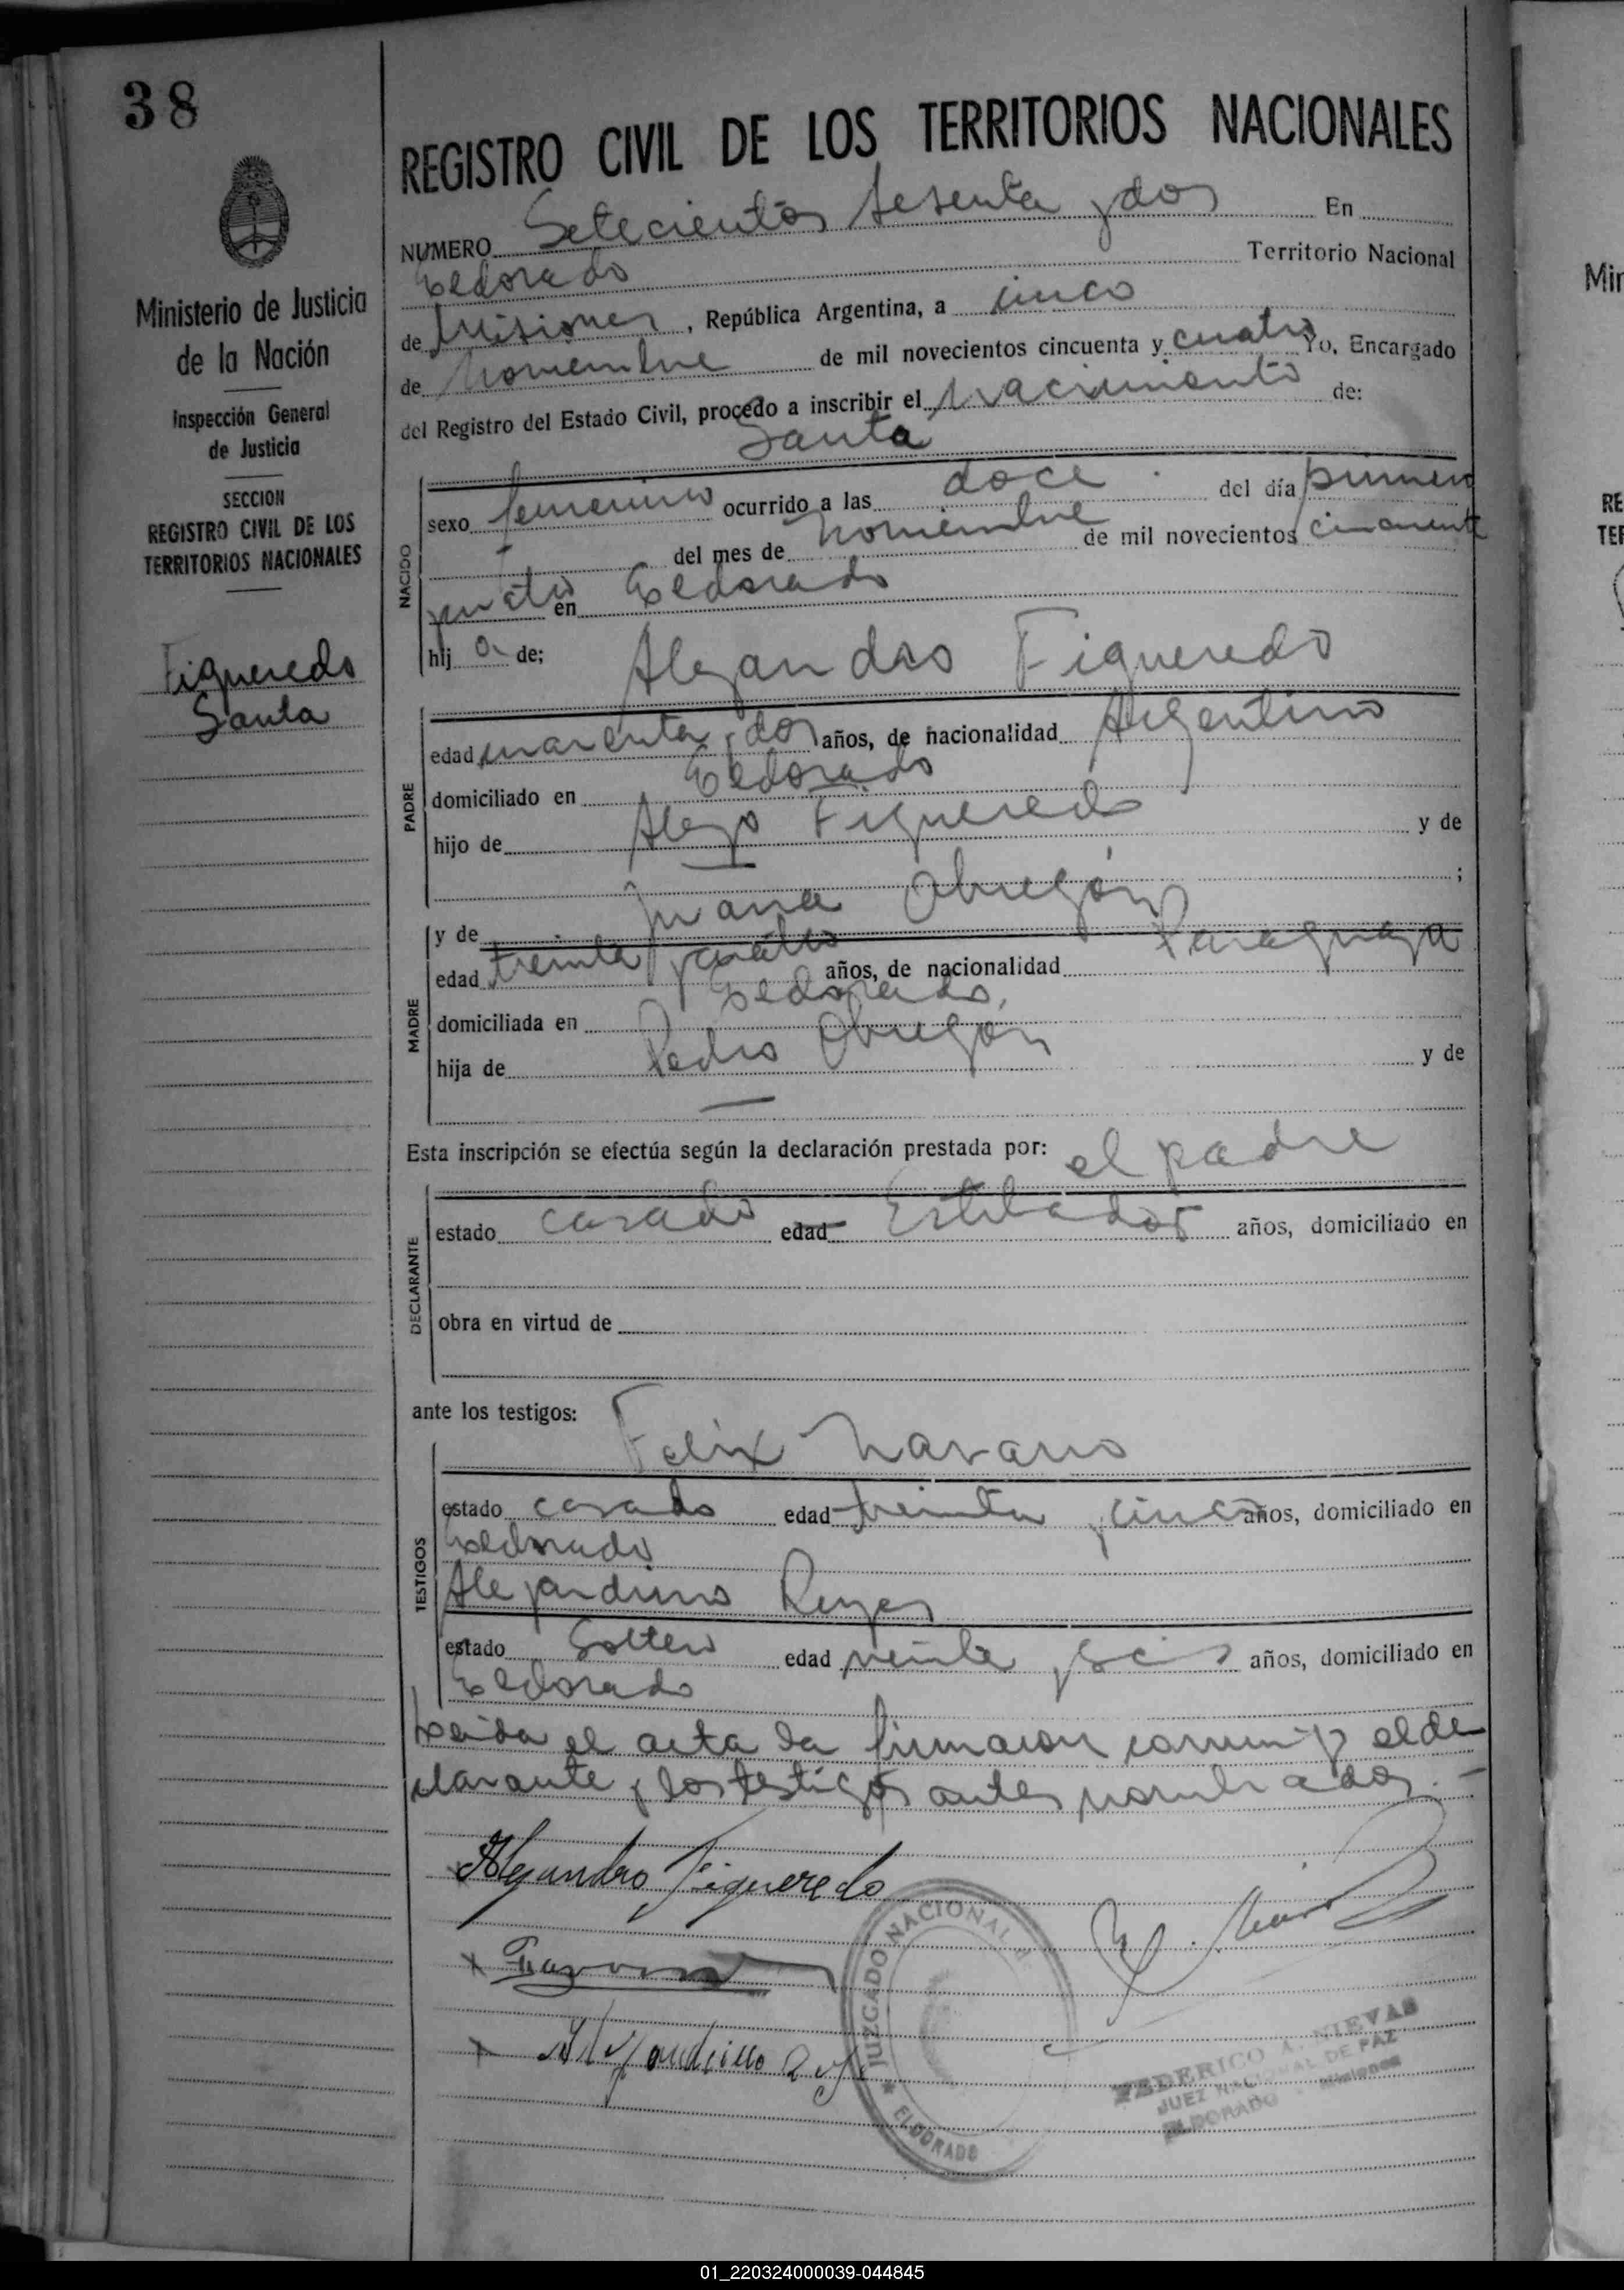 38
Ministerio de Justicia
de la Nación
Inspección General
de Justicia
SECCION
REGISTRO CIVIL DE LOS
TERRITORIOS NACIONALES
Figueredo
Santa
REGISTRO CIVIL DE LOS TERRITORIOS NACIONALES
NUMERO Setecientos sesenta y dos En
Eldorado Territorio Nacional
de Misiones, República Argentina, a cinco
de Noviembre de mil novecientos cincuenta y cuatro Yo, Encargado
del Registro del Estado Civil, procedo a inscribir el Nacimiento de:
Santa
NACIDO
sexo femenino ocurrido a las doce del día primero
del mes de Noviembre de mil novecientos cincuenta
y cuatro en Eldorado
hij a de; Alejandro Figueredo
PADRE
edad cuarenta y dos años, de nacionalidad Argentino
domiciliado en Eldorado
hijo de Alejo Figueredo y de
;
y de Juana Obregón
MADRE
edad treinta y cuatro años, de nacionalidad Paraguaya
domiciliada en Eldorado,
hija de Pedro Obregón y de
Esta inscripción se efectúa según la declaración prestada por: el padre
DECLARANTE
estado casado edad Estibador años, domiciliado en
obra en virtud de
ante los testigos: Felix Navarro
TESTIGOS
estado casado edad treinta y cinco años, domiciliado en
Eldorado
Alejandrino Reyes
estado Soltero edad veinte y seis años, domiciliado en
Eldorado
Leida el acta la firmaron conmigo el de
clarante y los testigos antes nombrados. -
Alejandro Figueredo
JUZGADO NACIONAL
ELDORADO
FEDERICO A. NIEVAS
JUEZ NACIONAL DE PAZ
ELDORADO - Misiones
01_220324000039-044845